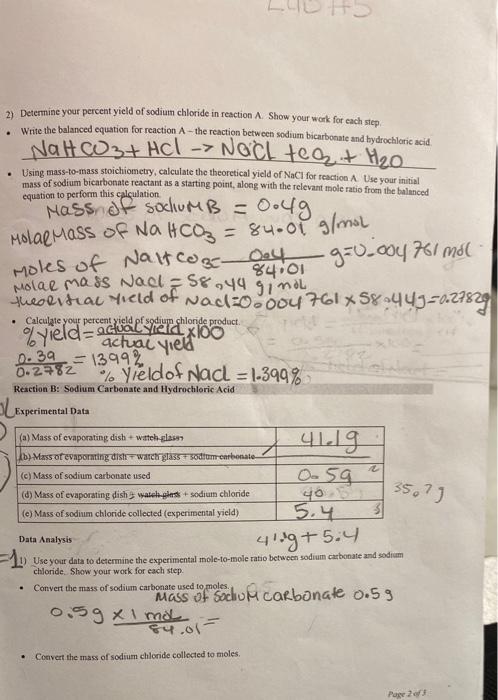 2) Determine your percent yield of sodium chloride in reaction A. Show your work for each step.
• Write the balanced equation for reaction A – the reaction between sodium bicarbonate and hydrochloric acid
NaHCO3 + HCl -> NaCl + CO2 + H2O
• Using mass-to-mass stoichiometry, calculate the theoretical yield of NaCl for reaction A. Use your initial
mass of sodium bicarbonate reactant as a starting point, along with the relevant mole ratio from the balanced
equation to perform this calculation.
Mass of sodium B = 0.4g
Molar Mass of NaHCO3 = 84.01 g/mol
Moles of NaHCO3 = 0.4/84.01 g = 0.004761 mol
Molar mass Nacl = 58.44 g/mol
theoretical yield of Nacl = 0.004761 x 58.44g = 0.2782g
• Calculate your percent yield of sodium chloride product.
% yield = actual yield x100
actual yield
0.39/0.2782 = 1399% % Yield of Nacl = 1.399%
Reaction B: Sodium Carbonate and Hydrochloric Acid
Experimental Data
(a) Mass of evaporating dish + watch glass 41.1g
(b) Mass of evaporating dish + watch glass + sodium carbonate
(c) Mass of sodium carbonate used 0.5g
(d) Mass of evaporating dish + watch glass + sodium chloride 40 35.7g
(e) Mass of sodium chloride collected (experimental yield) 5.4
Data Analysis 41.1g + 5.4
1) Use your data to determine the experimental mole-to-mole ratio between sodium carbonate and sodium
chloride. Show your work for each step.
• Convert the mass of sodium carbonate used to moles.
Mass of Sodium carbonate 0.5g
0.5g x 1 mol/84.01 =
• Convert the mass of sodium chloride collected to moles.
Page 2 of 3